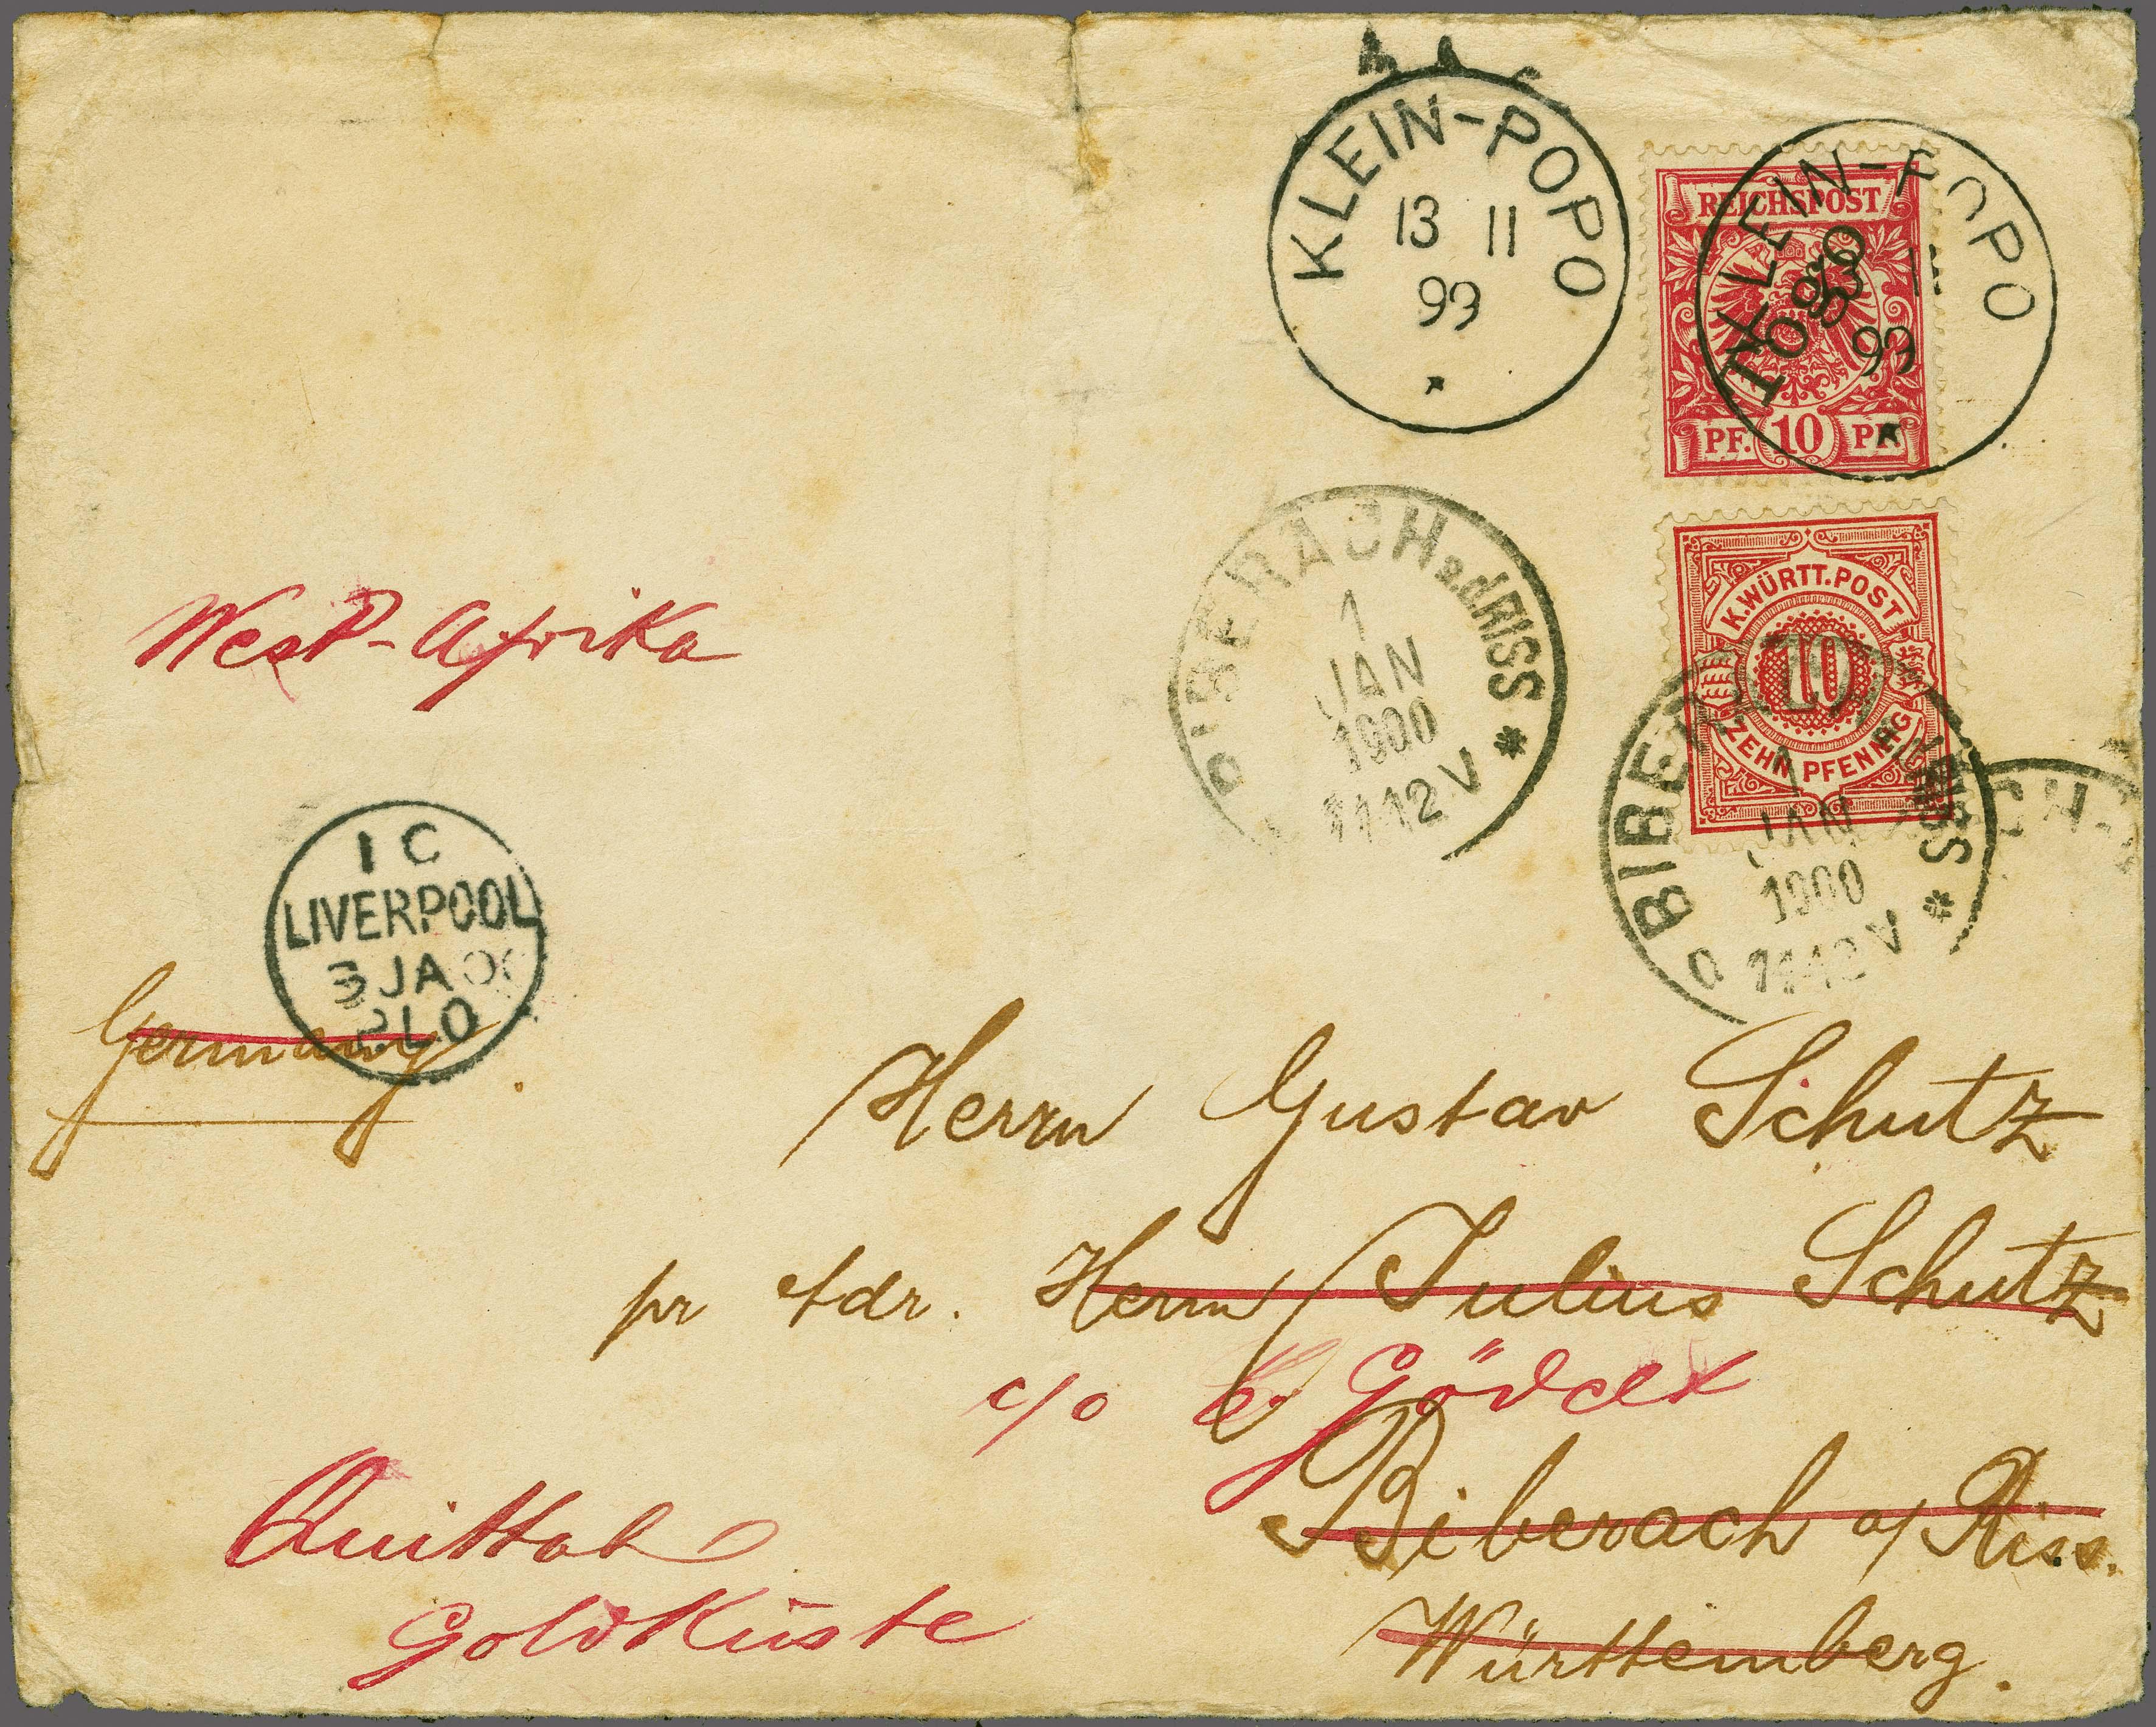 KLEIN-POPO
13 11
99
REICHSPOST
PF. 10 PF.
Togo
KLEIN-POPO
99
BIBERACH a.d.RISS
1
JAN
1900
11-12 V
K.WÜRTT.POST
10
ZEHN PFENNIG
BIBERACH a.d.RISS
1
JAN
1900
11-12 V
CH
West-Afrika
1 C
LIVERPOOL
3 JA 00
Germany
Herrn Gustav Schutz
pr Adr. Herrn Julius Schutz
c/o
Biberach a/Riss.
Quittah
Goldküste
Württemberg.